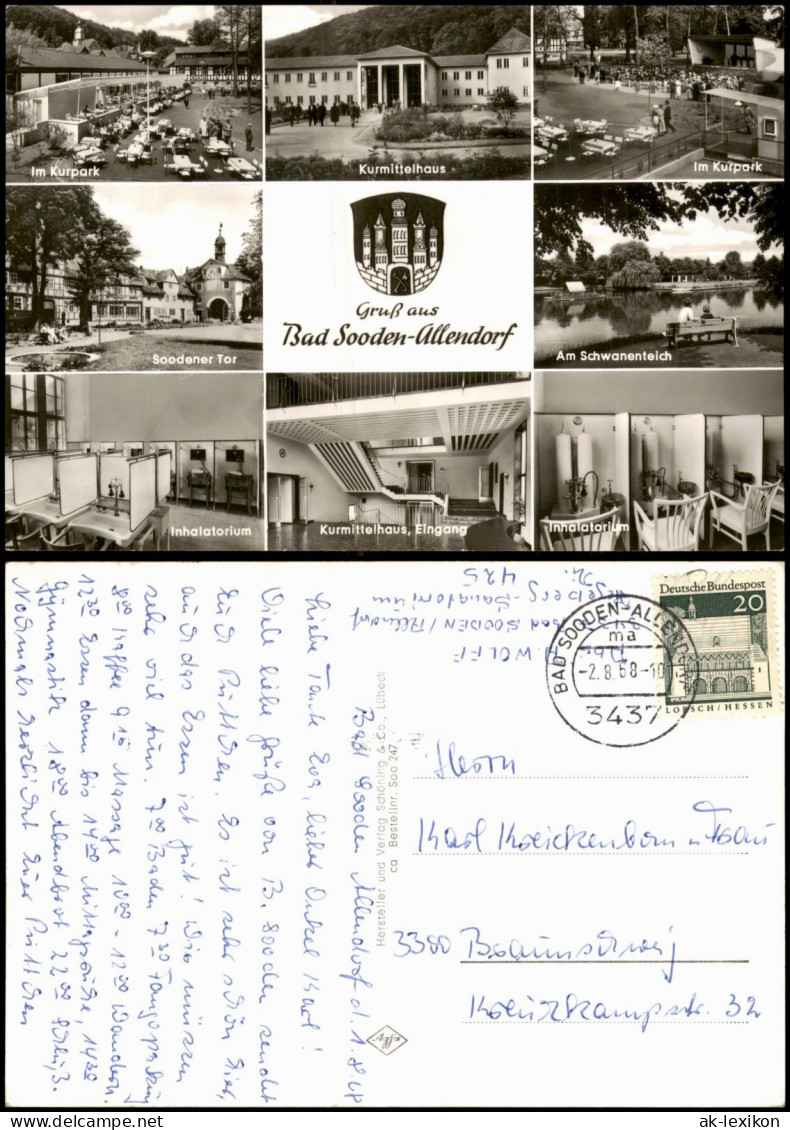 Im Kurpark
Kurmittelhaus
Im Kurpark
Soodener Tor
Gruß aus
Bad Sooden-Allendorf
Am Schwanenteich
Inhalatorium
Kurmittelhaus, Eingang
Inhalatorium
Bad Sooden Allendorf d. 1.8.68
Liebe Tante Eva, lieber Onkel Karl!
Viele liebe Grüße von B. Sooden sendet
Euch Püttchen. Es ist sehr schön hier,
auch das Essen ist gut! Wir müssen
sehr viel tun. 7 00 Baden 7 30 Fangopackung
8 00 Kaffee 9 15 Massage 10 00 - 12 00 Wandern.
12 30 Essen dann bis 14 00 Mittagspause, 14 30
Gymnastik 18 00 Abendbrot 22 00
Nochmals herzlichst Euer Püttchen
Hersteller und Verlag Schöning & Co., Lübeck
ca Bestellnr. Soo 247
Agfa
WOLFF
BAD SOODEN/Allendorf
-Sanatorium
425
BAD SOODEN-ALLENDORF
ma
-2.8.68-10
3437
Deutsche Bundespost
20
LORSCH/HESSEN
Herrn
Karl Kreickenbom u Frau
3300 Braunschweig
Kreuzkampstr. 32
www.ak-lexikon.de
ak-lexikon